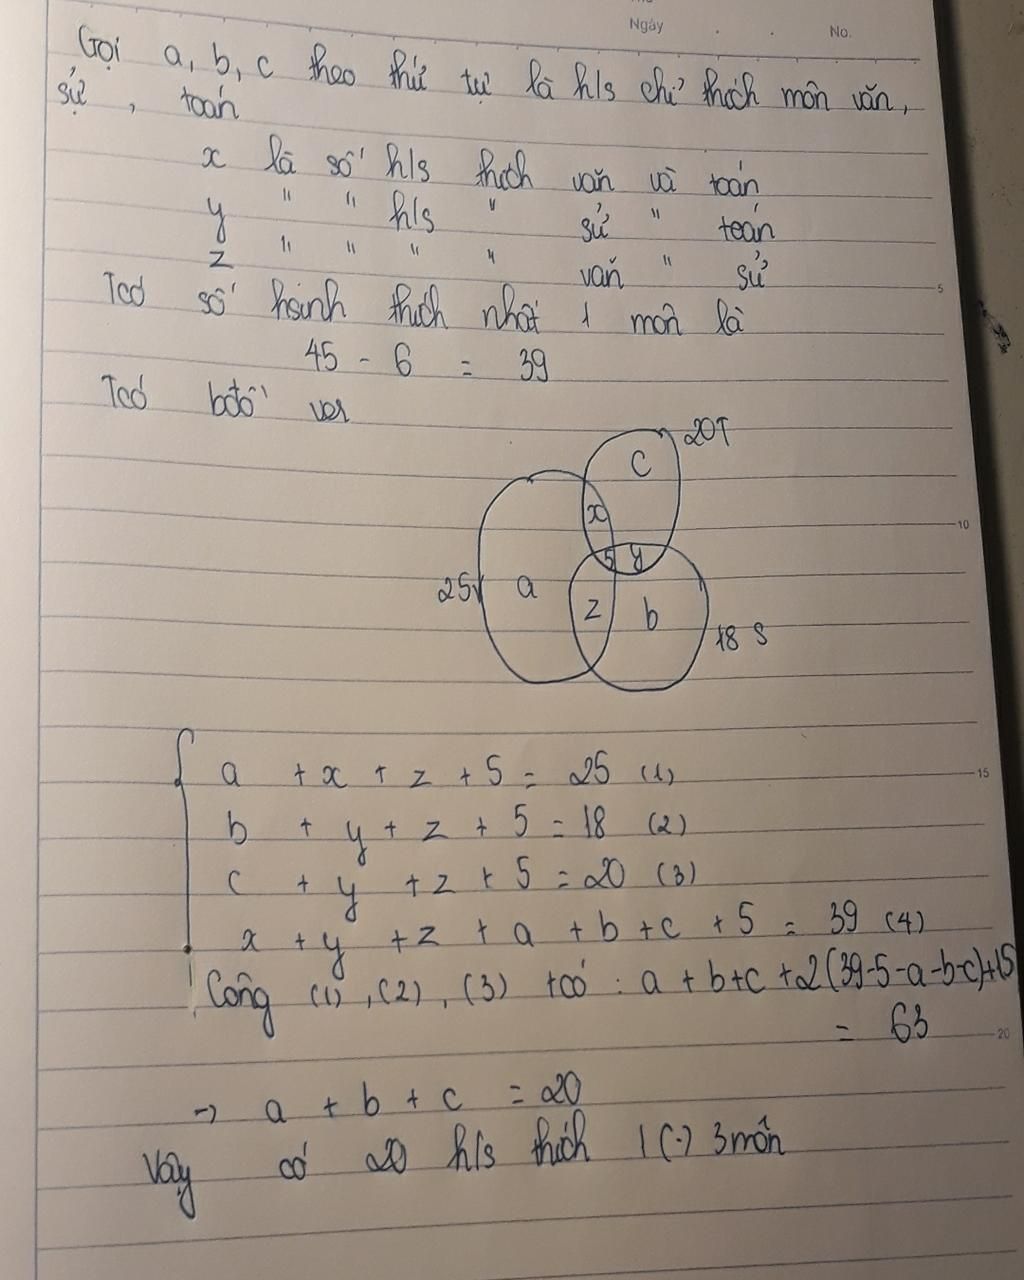 Ngày . . No.
Gọi a, b, c theo thứ tự là h/s chỉ thích môn văn,
sử, toán
x là số h/s thích văn và toán
y " " h/s " sử " toán
z " " " " văn " sử
Tcó số hsinh thích nhất 1 môn là
45 - 6 = 39
Tcó bđồ ven
20T
c
x
5 y
25V a
z b
18 S
a + x + z + 5 = 25 (1)
b + y + z + 5 = 18 (2)
c + y + z + 5 = 20 (3)
x + y + z + a + b + c + 5 = 39 (4)
Cộng (1), (2), (3) tcó : a + b + c + 2(39-5-a-b-c)+15
= 63
→ a + b + c = 20
Vậy có 20 h/s thích 1 (·) 3 môn
5
10
15
20